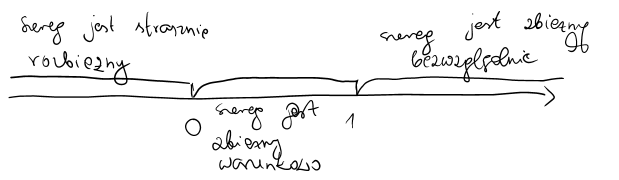 szereg jest strasznie
rozbieżny
szereg jest zbieżny
bezwzględnie
0
szereg jest
zbieżny
warunkowo
1